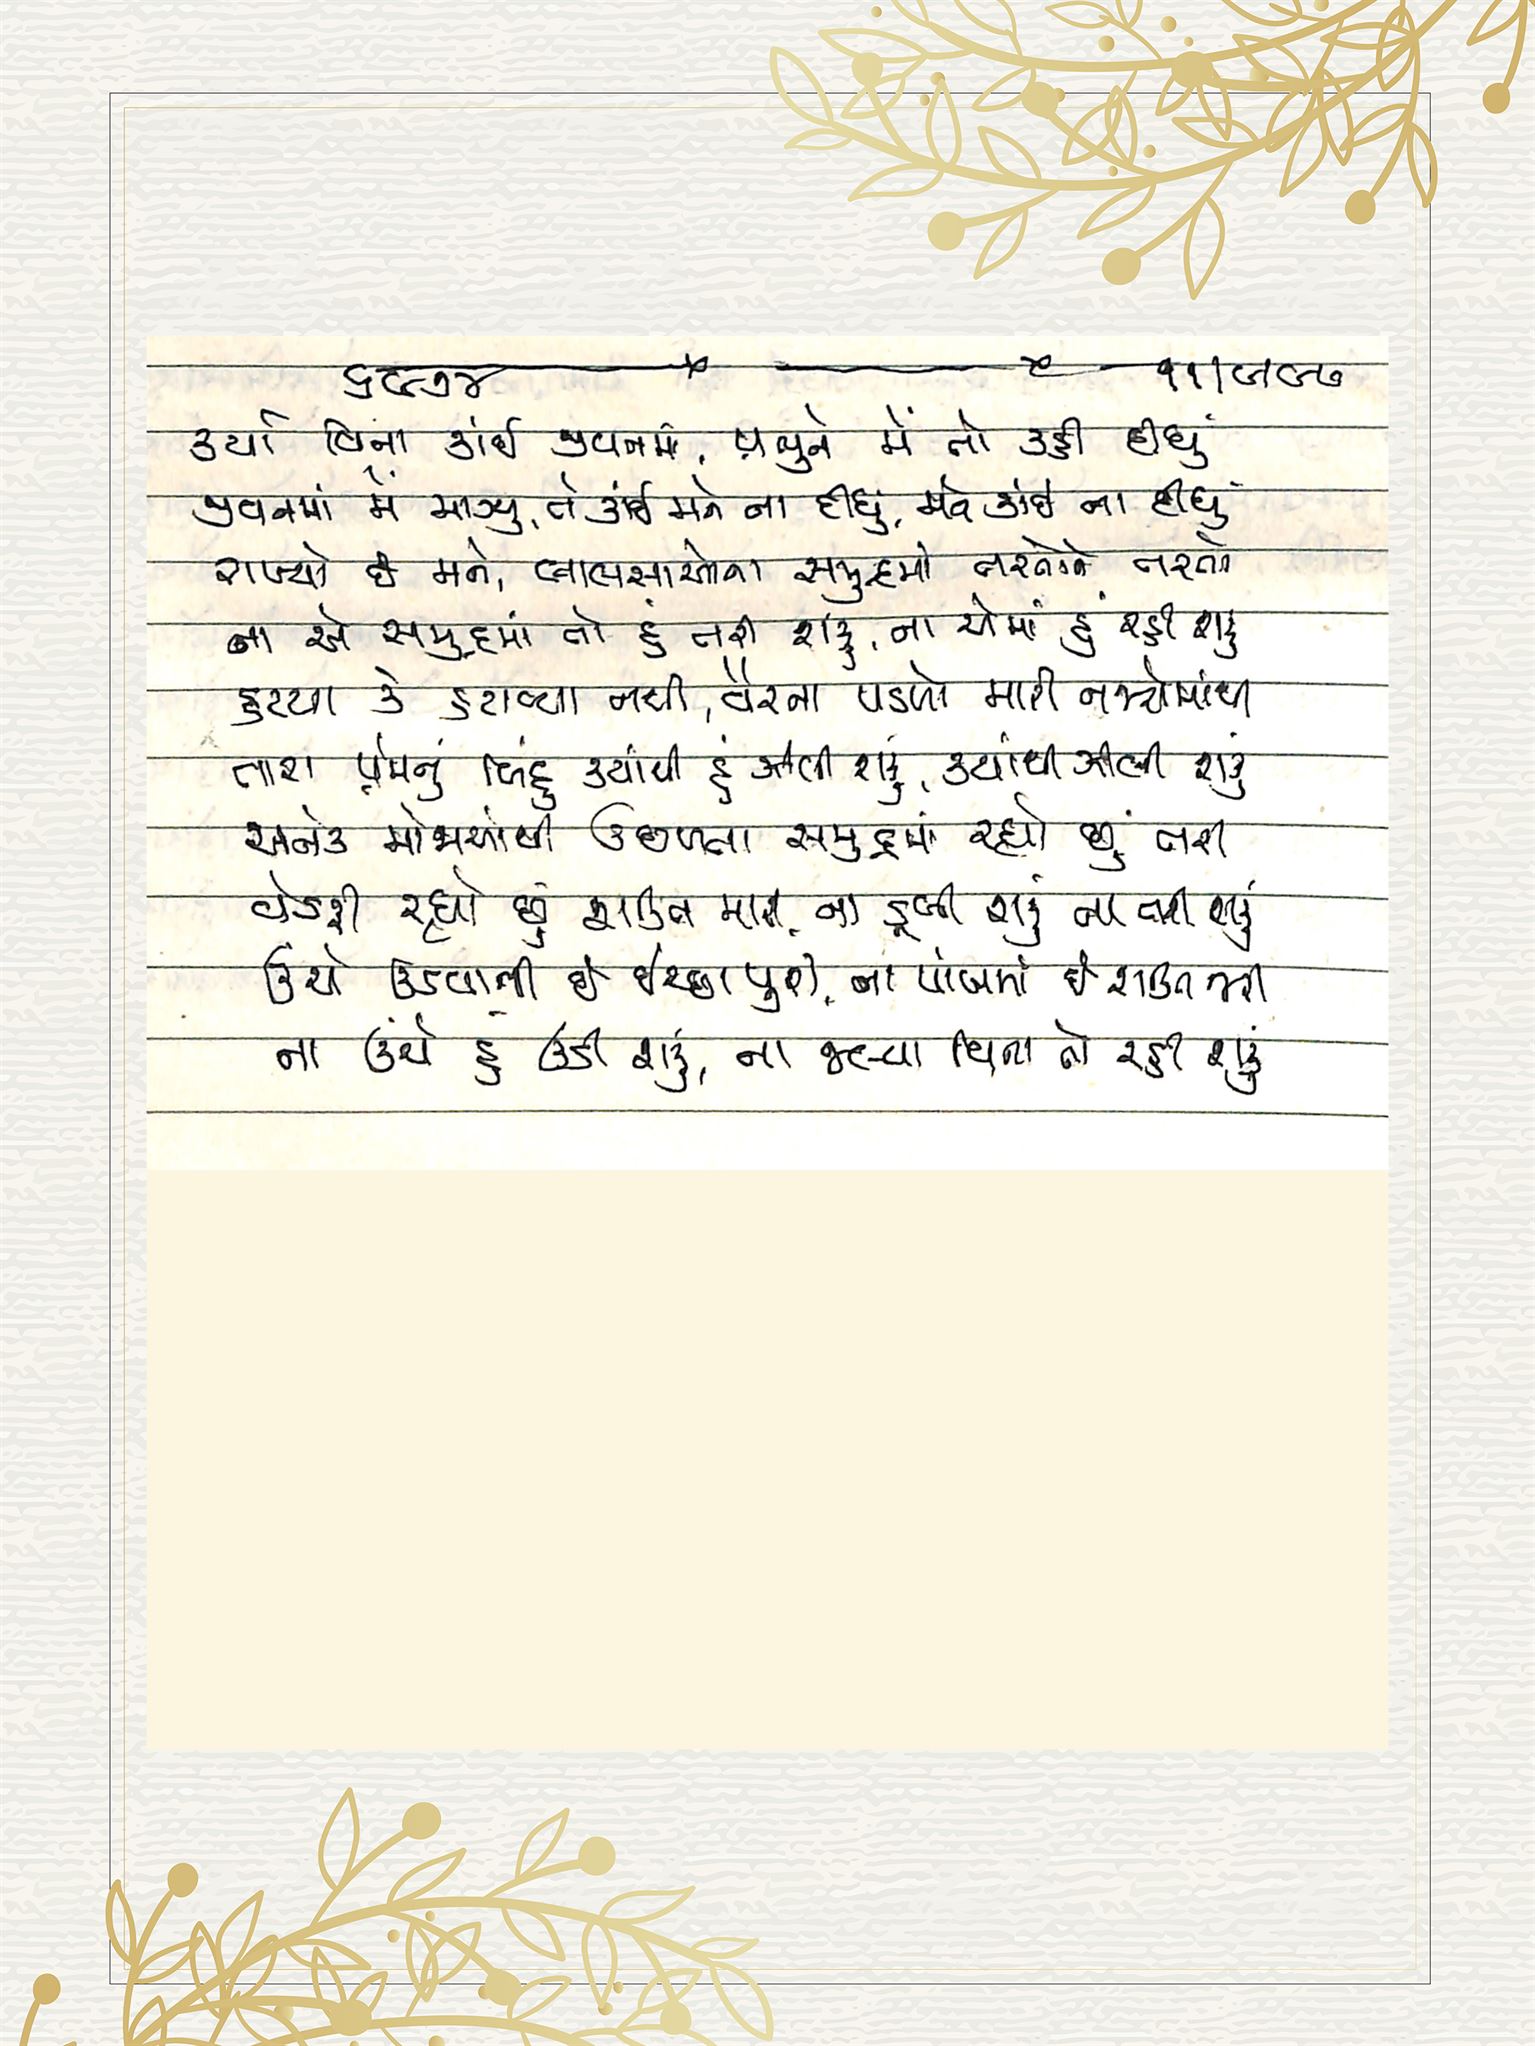 કર્યા વિના કાંઈ જીવનમાં, પ્રભુને મેં તો કહી દીધું
જીવનમાં મેં માગ્યું, તે કાંઈ મને ના દીધું, મને કાંઈ ના દીધું
રાખ્યો છે મને, લાલસાઓના સમુદ્રમાં તરતોને તરતો
ના એ સમુદ્રમાં તો હું તરી શકું, ના એમાં હું રહી શકું
હટયા કે હટાવ્યા નથી, વૈરના પડળો મારી નજરોમાંથી
તારા પ્રેમનું બિંદુ ક્યાંથી હું ઝીલી શકું, ક્યાંથી ઝીલી શકું
અનેક મોજાઓથી ઉછળતા સમુદ્રમાં રહ્યો છું તરી
વેડફી રહ્યો છું શક્તિ મારી, ના ડૂબી શકું ના તરી શકું
ઉંચે ઉડવાની છે ઈચ્છા પુરી, ના પાંખમાં છે શક્તિ ભરી
ના ઉંચે હું ઉડી શકું, ના જલ્યા વિના તો રહી શકું